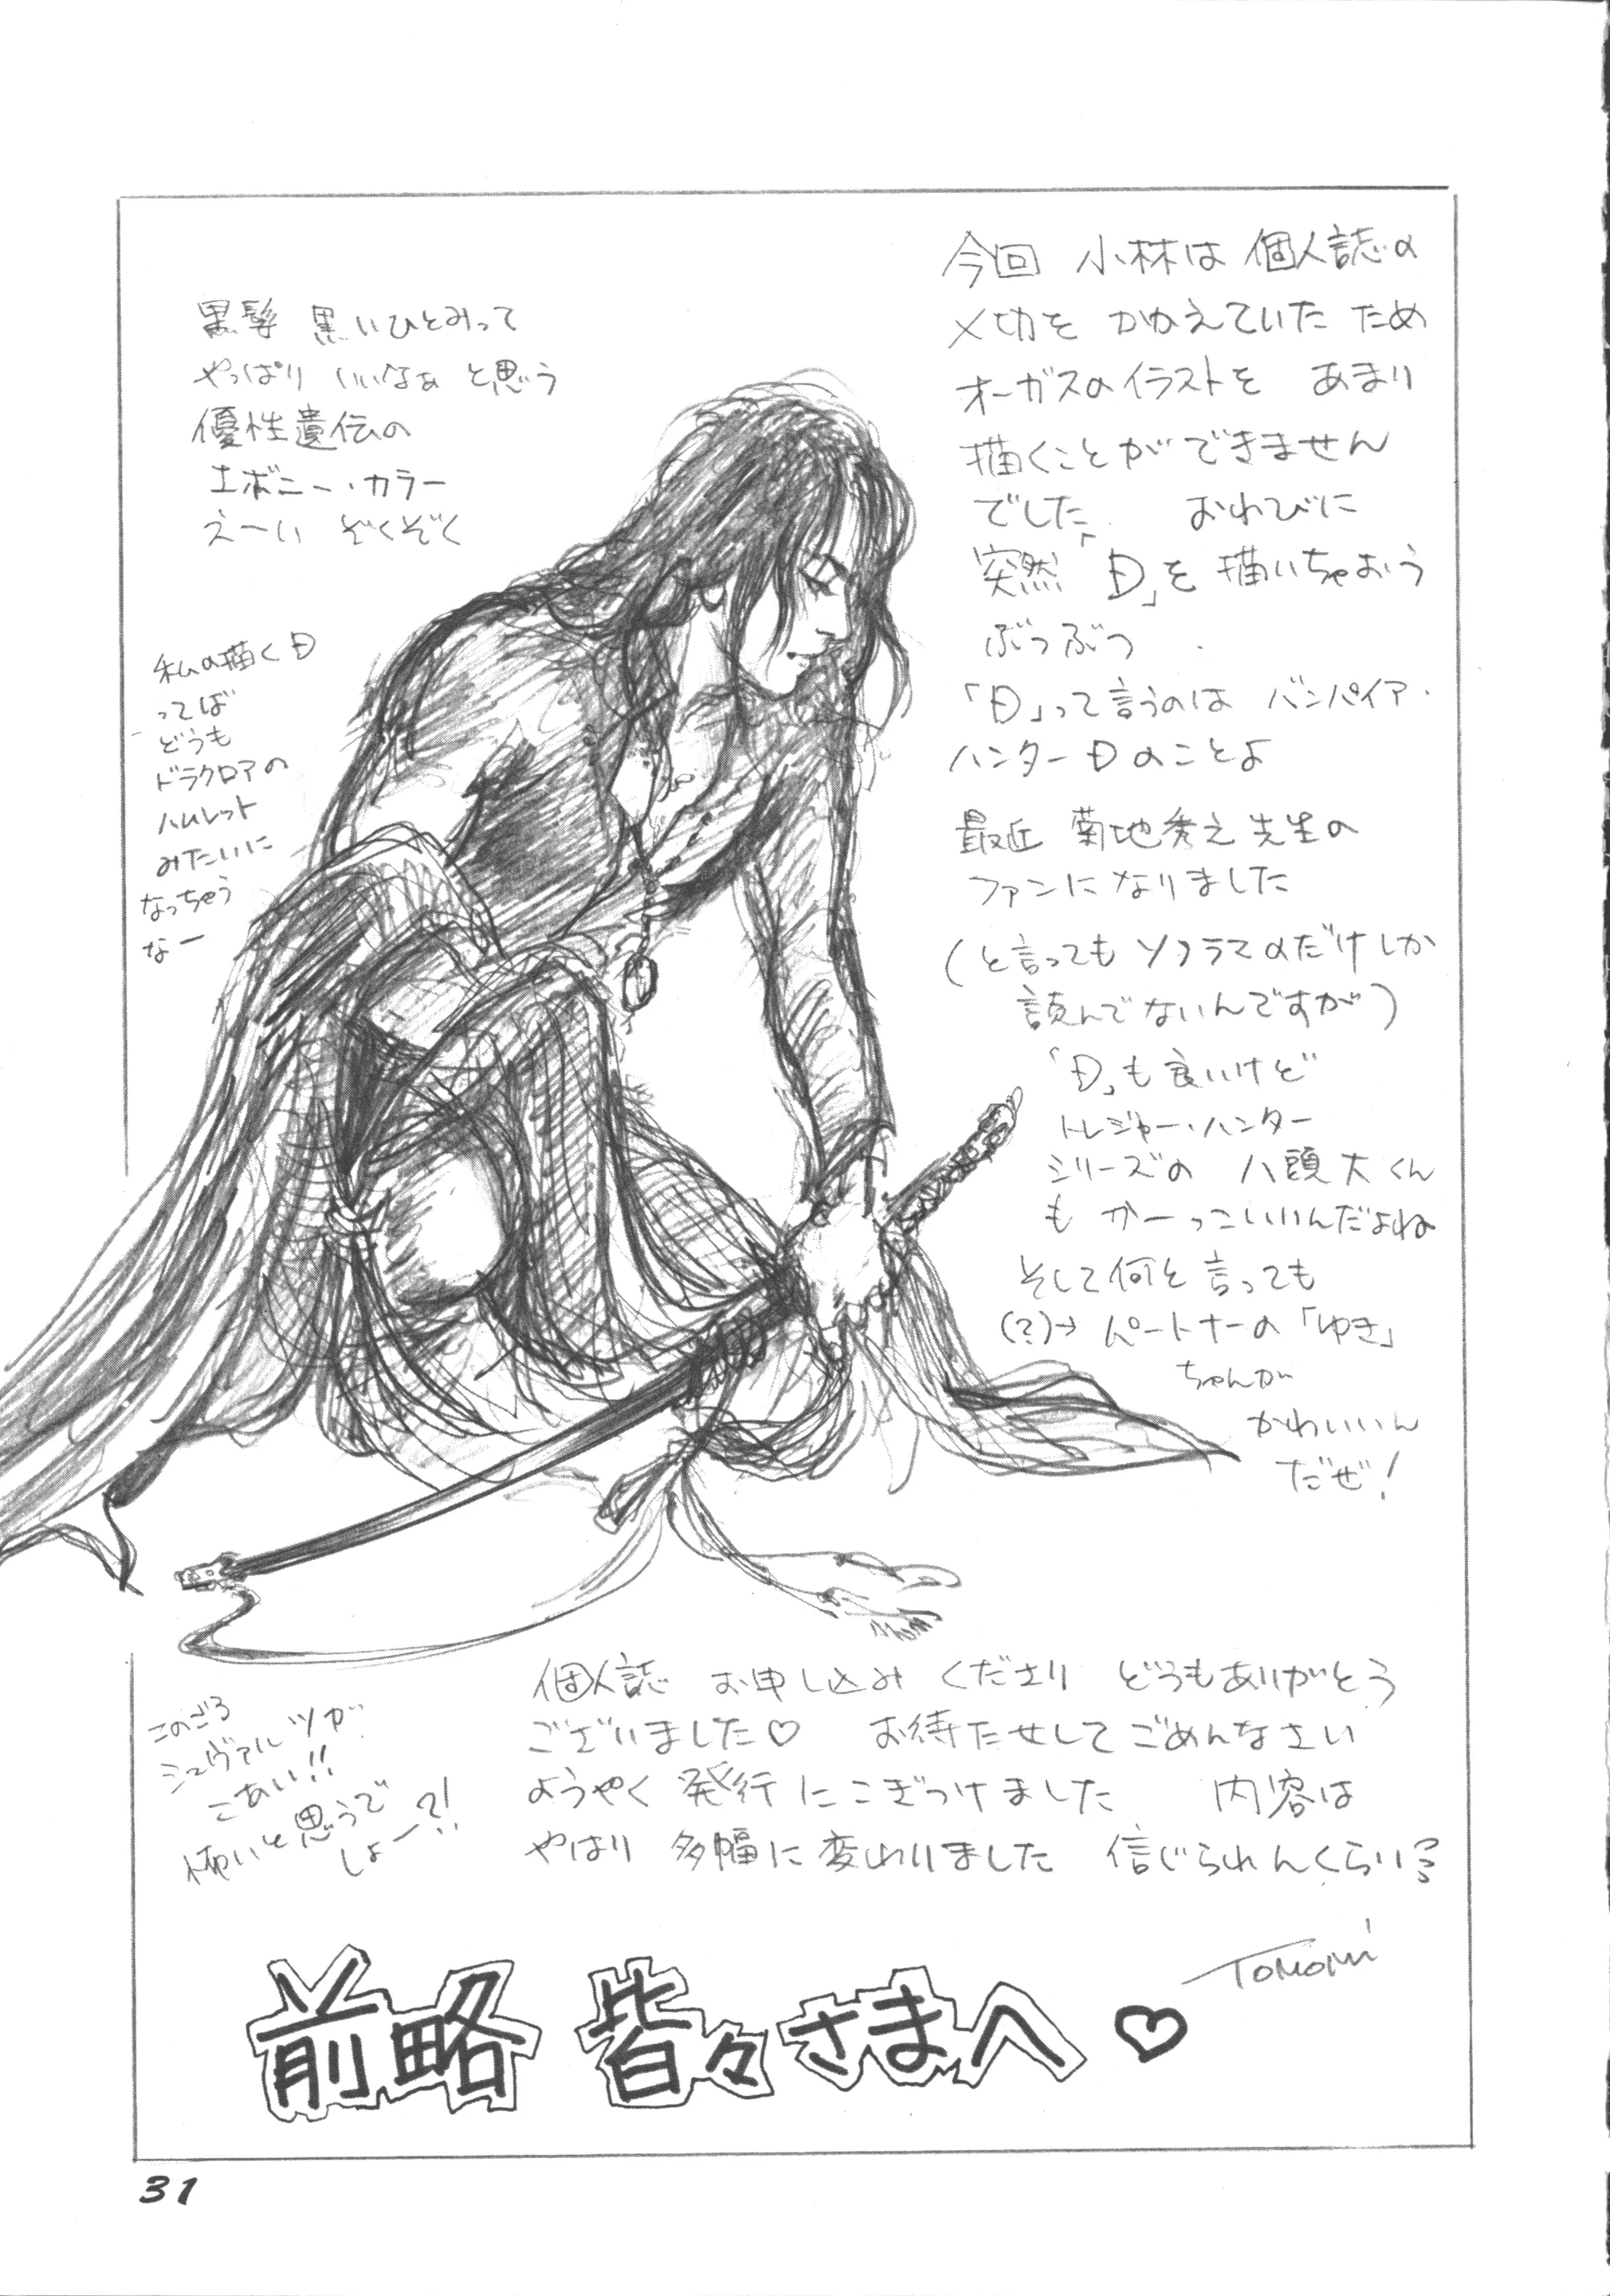 今回 小林は 個人誌の
〆切を かかえていた ため
オーガスのイラストを あまり
描くことができません
でした おわびに
突然「D」を描いちゃおう
ぶつぶつ
「D」って言うのは バンパイア・
ハンターDのことよ
最近 菊地秀之先生の
ファンになりました
(と言っても ソノラマのだけしか
読んでないんですが)
「D」も良いけど
トレジャー・ハンター
シリーズの 八頭大くん
も かーっこいいんだよね
そして何と言っても
(?)→ パートナーの「ゆき」
ちゃんが
かわいいん
だぜ!
黒髪 黒いひとみって
やっぱり いいなぁ と思う
優性遺伝の
エボニー・カラー
え〜い ぞくぞく
私の描くD
ってば
どうも
ドラクロアの
ハムレット
みたいに
なっちゃう
なー
個人誌 お申し込み くださり どうもありがとう
ございました♡ お待たせして ごめんなさい
ようやく 発行にこぎつけました 内容は
やはり 多幅に変わりました 信じられんくらい?
このごろ
シュヴァルツが
こあい!!
怖いと思うで
しょー?!
Tomomi
前略 皆々さまへ♡
31